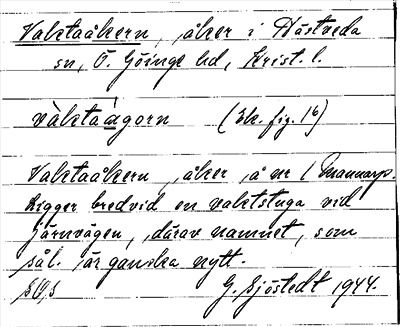 Vaktaåkern, åker i Hästveda
sn, Ö. Göinge hd, Krist. l.
vàktaágorn (Ek. fig. 16)
Vaktaåkern, åker å nr 1 Mannarp.
Ligger bredvid en vaktstuga vid
järnvägen, därav namnet, som
sål. är ganska nytt.
G. Sjöstedt 1944.